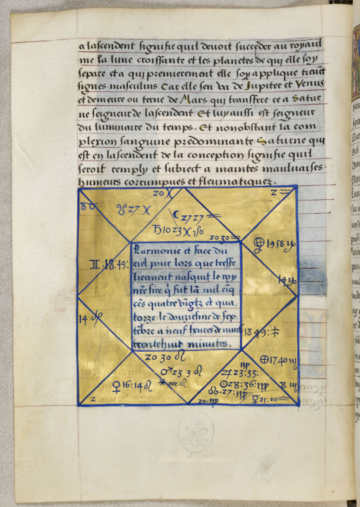 a lascendent signifie quil devoit succeder au royaul
me La lune croissante et les planetes de qui elle soy
separe et a qui premierement elle soy applique tiennent
signes masculins Car elle sen va de Jupiter et Venus
et demeure ou terme de Mars qui transfere ce a Satur
ne seigneur de lascendent Et luy aussi est seigneur
du luminaire du temps. Et nonobstant la com
plexion sanguine predominante Saturne qui
est en lascendent de la conception signifie quil
seroit remply et subiect a maintes mauluaises
humeurs corrumpues et fleumatiques.
20 ♓
♉ 0
27 ♓
☾ 27 27 ♒
♄ 10 23 ♓
20 30 ♒
2 ♒
19 58 ♑
♊ : 18 : 49 :
Larmonie et face du
ciel pour lors que tresfe
licement nasquit le roy
fut lan mil cinq
cens quatre vingtz et qua
torze le douziesme de sep
tembre a neuf heures de nuit
trentehuit minutes.
14
18 49 : ♐
20 30 ♌
♂ 23 3 ♌
♀ 16 : 14 ♌
♃ 23 : 33 :
☉ 28 : 36 : ♍
27 : ♍
⊕ 17 40 ♏
20 ♍